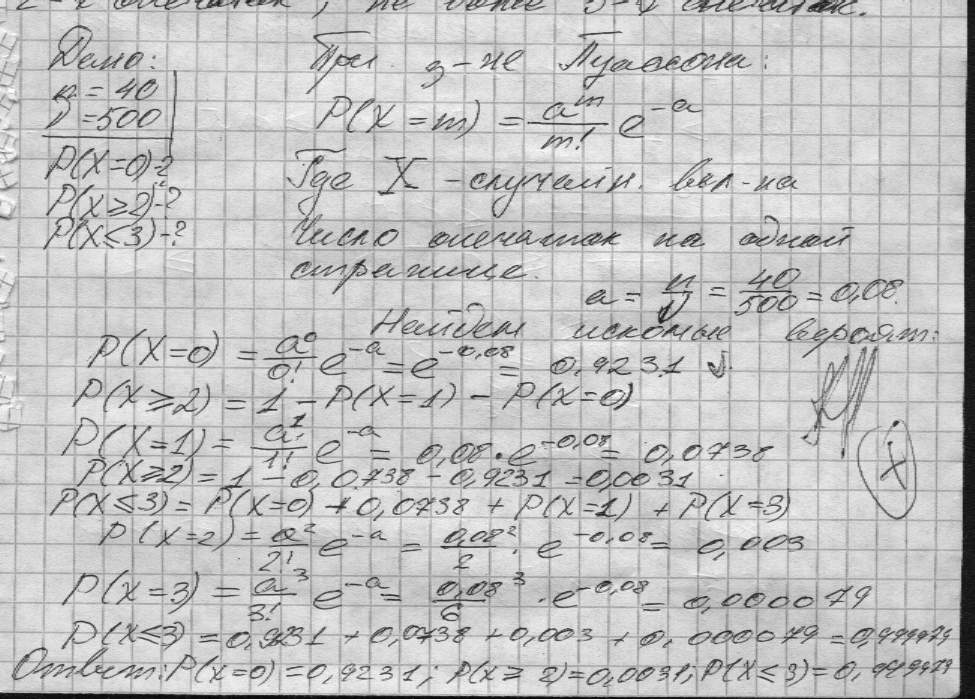 2-х опечаток, не более 3-х опечаток.
Дано:
n = 40
N = 500
P(X=0)-?
P(X≥2)-?
P(X≤3)-?
При з-не Пуассона:
P(X=m) = a^m/m! e^-a
Где X - случайн. вел-на
Число опечаток на одной
странице.
a = n/N = 40/500 = 0,08.
Найдем искомые вероят:
P(X=0) = a^0/0! e^-a = e^-0,08 = 0,9231
P(X≥2) = 1 - P(X=1) - P(X=0)
P(X=1) = a^1/1! e^-a = 0,08·e^-0,08 = 0,0738
P(X≥2) = 1 - 0,0738 - 0,9231 = 0,0031
P(X≤3) = P(X=0) + 0,0738 + P(X=1) + P(X=3)
P(X=2) = a^2/2! e^-a = 0,08^2/2 · e^-0,08 = 0,003
P(X=3) = a^3/3! e^-a = 0,08^3/6 · e^-0,08 = 0,000079
P(X≤3) = 0,9231 + 0,0738 + 0,003 + 0,000079 = 0,999979
Ответ: P(X=0) = 0,9231; P(X≥2) = 0,0031; P(X≤3) = 0,999979